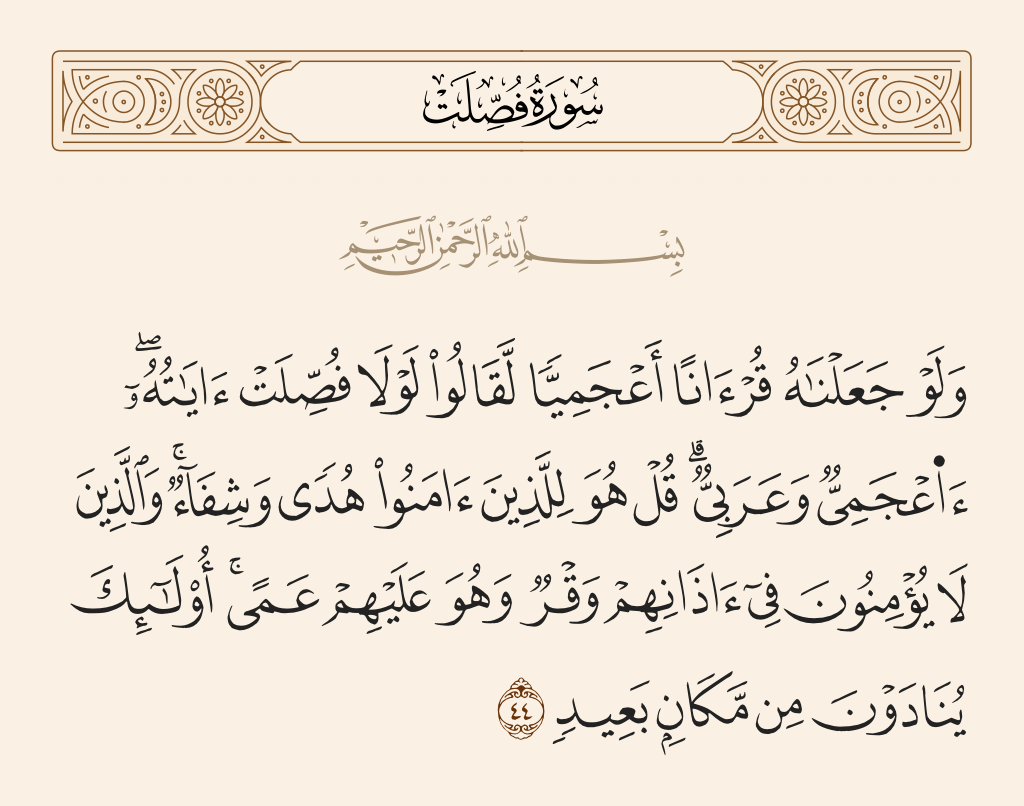 سُورَةُ فُصِّلَتْ
بِسْمِ ٱللَّهِ ٱلرَّحْمَٰنِ ٱلرَّحِيمِ
وَلَوْ جَعَلْنَٰهُ قُرْءَانًا أَعْجَمِيًّا لَّقَالُوا۟ لَوْلَا فُصِّلَتْ ءَايَٰتُهُۥٓ ۖ
ءَا۬عْجَمِىٌّ وَعَرَبِىٌّ ۗ قُلْ هُوَ لِلَّذِينَ ءَامَنُوا۟ هُدًى وَشِفَآءٌ ۚ وَٱلَّذِينَ
لَا يُؤْمِنُونَ فِىٓ ءَاذَانِهِمْ وَقْرٌ وَهُوَ عَلَيْهِمْ عَمًى ۚ أُو۟لَٰٓئِكَ
يُنَادَوْنَ مِن مَّكَانٍۭ بَعِيدٍ ٤٤